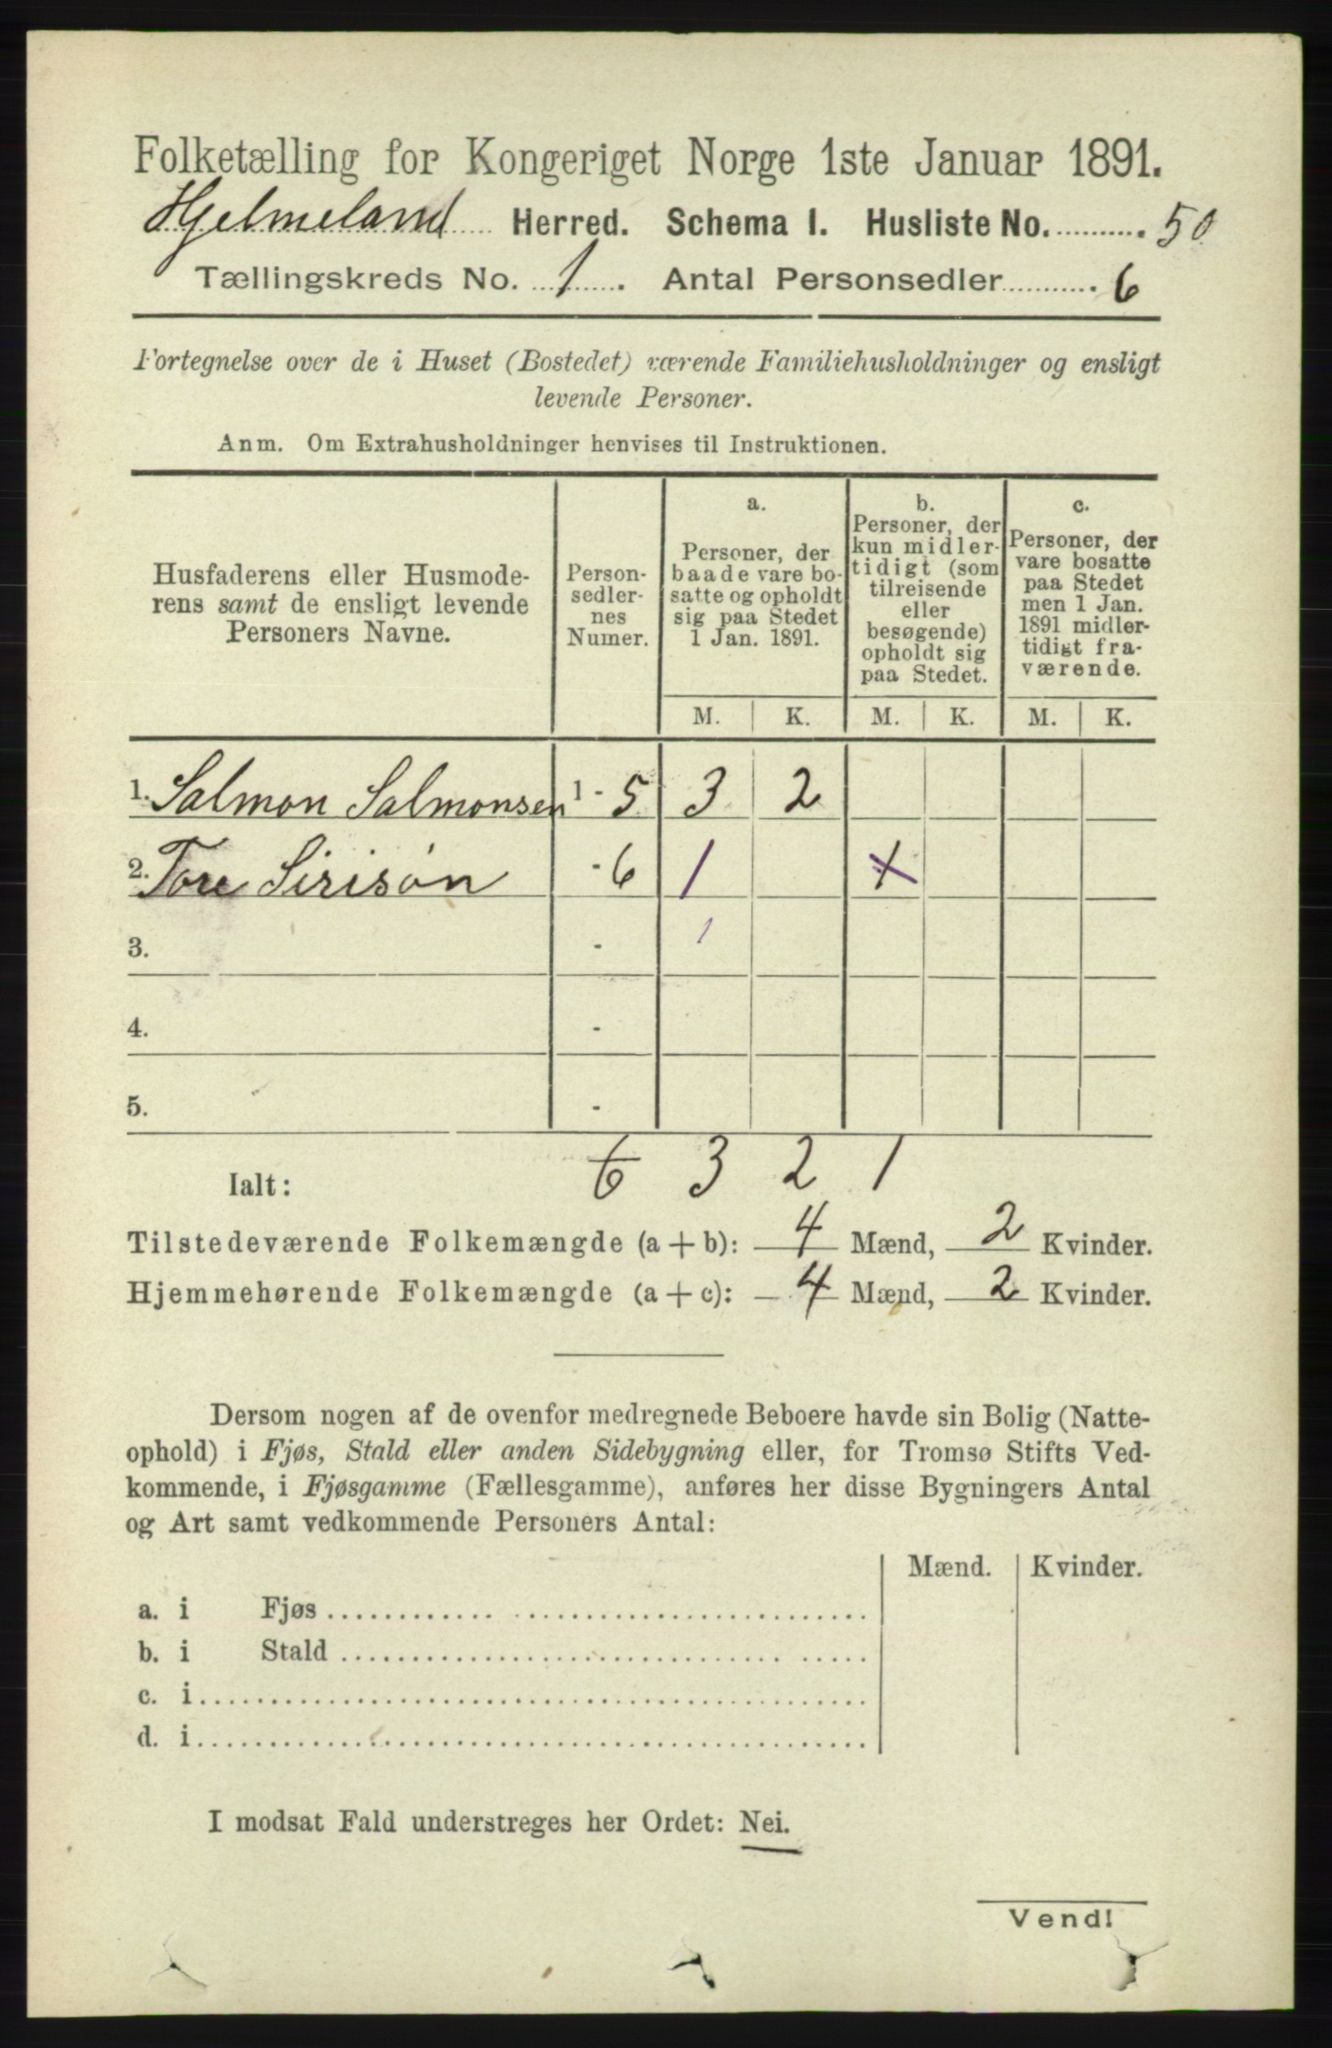 Folketælling for Kongeriget Norge 1ste Januar 1891.
Hjelmeland Herred. Schema I. Husliste No. 50
Tællingskreds No. 1. Antal Personsedler 6
Fortegnelse over de i Huset (Bostedet) værende Familiehusholdninger og ensligt
levende Personer.
Anm. Om Extrahusholdninger henvises til Instruktionen.
Husfaderens eller Husmode-
rens samt de ensligt levende
Personers Navne.
Person-
sedler-
nes
Numer.
a.
Personer, der
baade vare bo-
satte og opholdt
sig paa Stedet
1 Jan. 1891.
b.
Personer, der
kun midler-
tidigt (som
tilreisende
eller
besøgende)
opholdt sig
paa Stedet.
c.
Personer, der
vare bosatte
paa Stedet
men 1 Jan.
1891 midler-
tidigt fra-
værende.
M. K. M. K. M. K.
1. Salmon Salmonsen 1 - 5 3 2
2. Tore Sirisøn - 6 1
3. - 1
4. -
5. -
Ialt: 6 3 2 1
Tilstedeværende Folkemængde (a + b): 4 Mænd, 2 Kvinder.
Hjemmehørende Folkemængde (a + c): 4 Mænd, 2 Kvinder.
Dersom nogen af de ovenfor medregnede Beboere havde sin Bolig (Natte-
ophold) i Fjøs, Stald eller anden Sidebygning eller, for Tromsø Stifts Ved-
kommende, i Fjøsgamme (Fællesgamme), anføres her disse Bygningers Antal
og Art samt vedkommende Personers Antal:
Mænd. Kvinder.
a. i Fjøs
b. i Stald
c. i
d. i
I modsat Fald understreges her Ordet: Nei.
Vend!